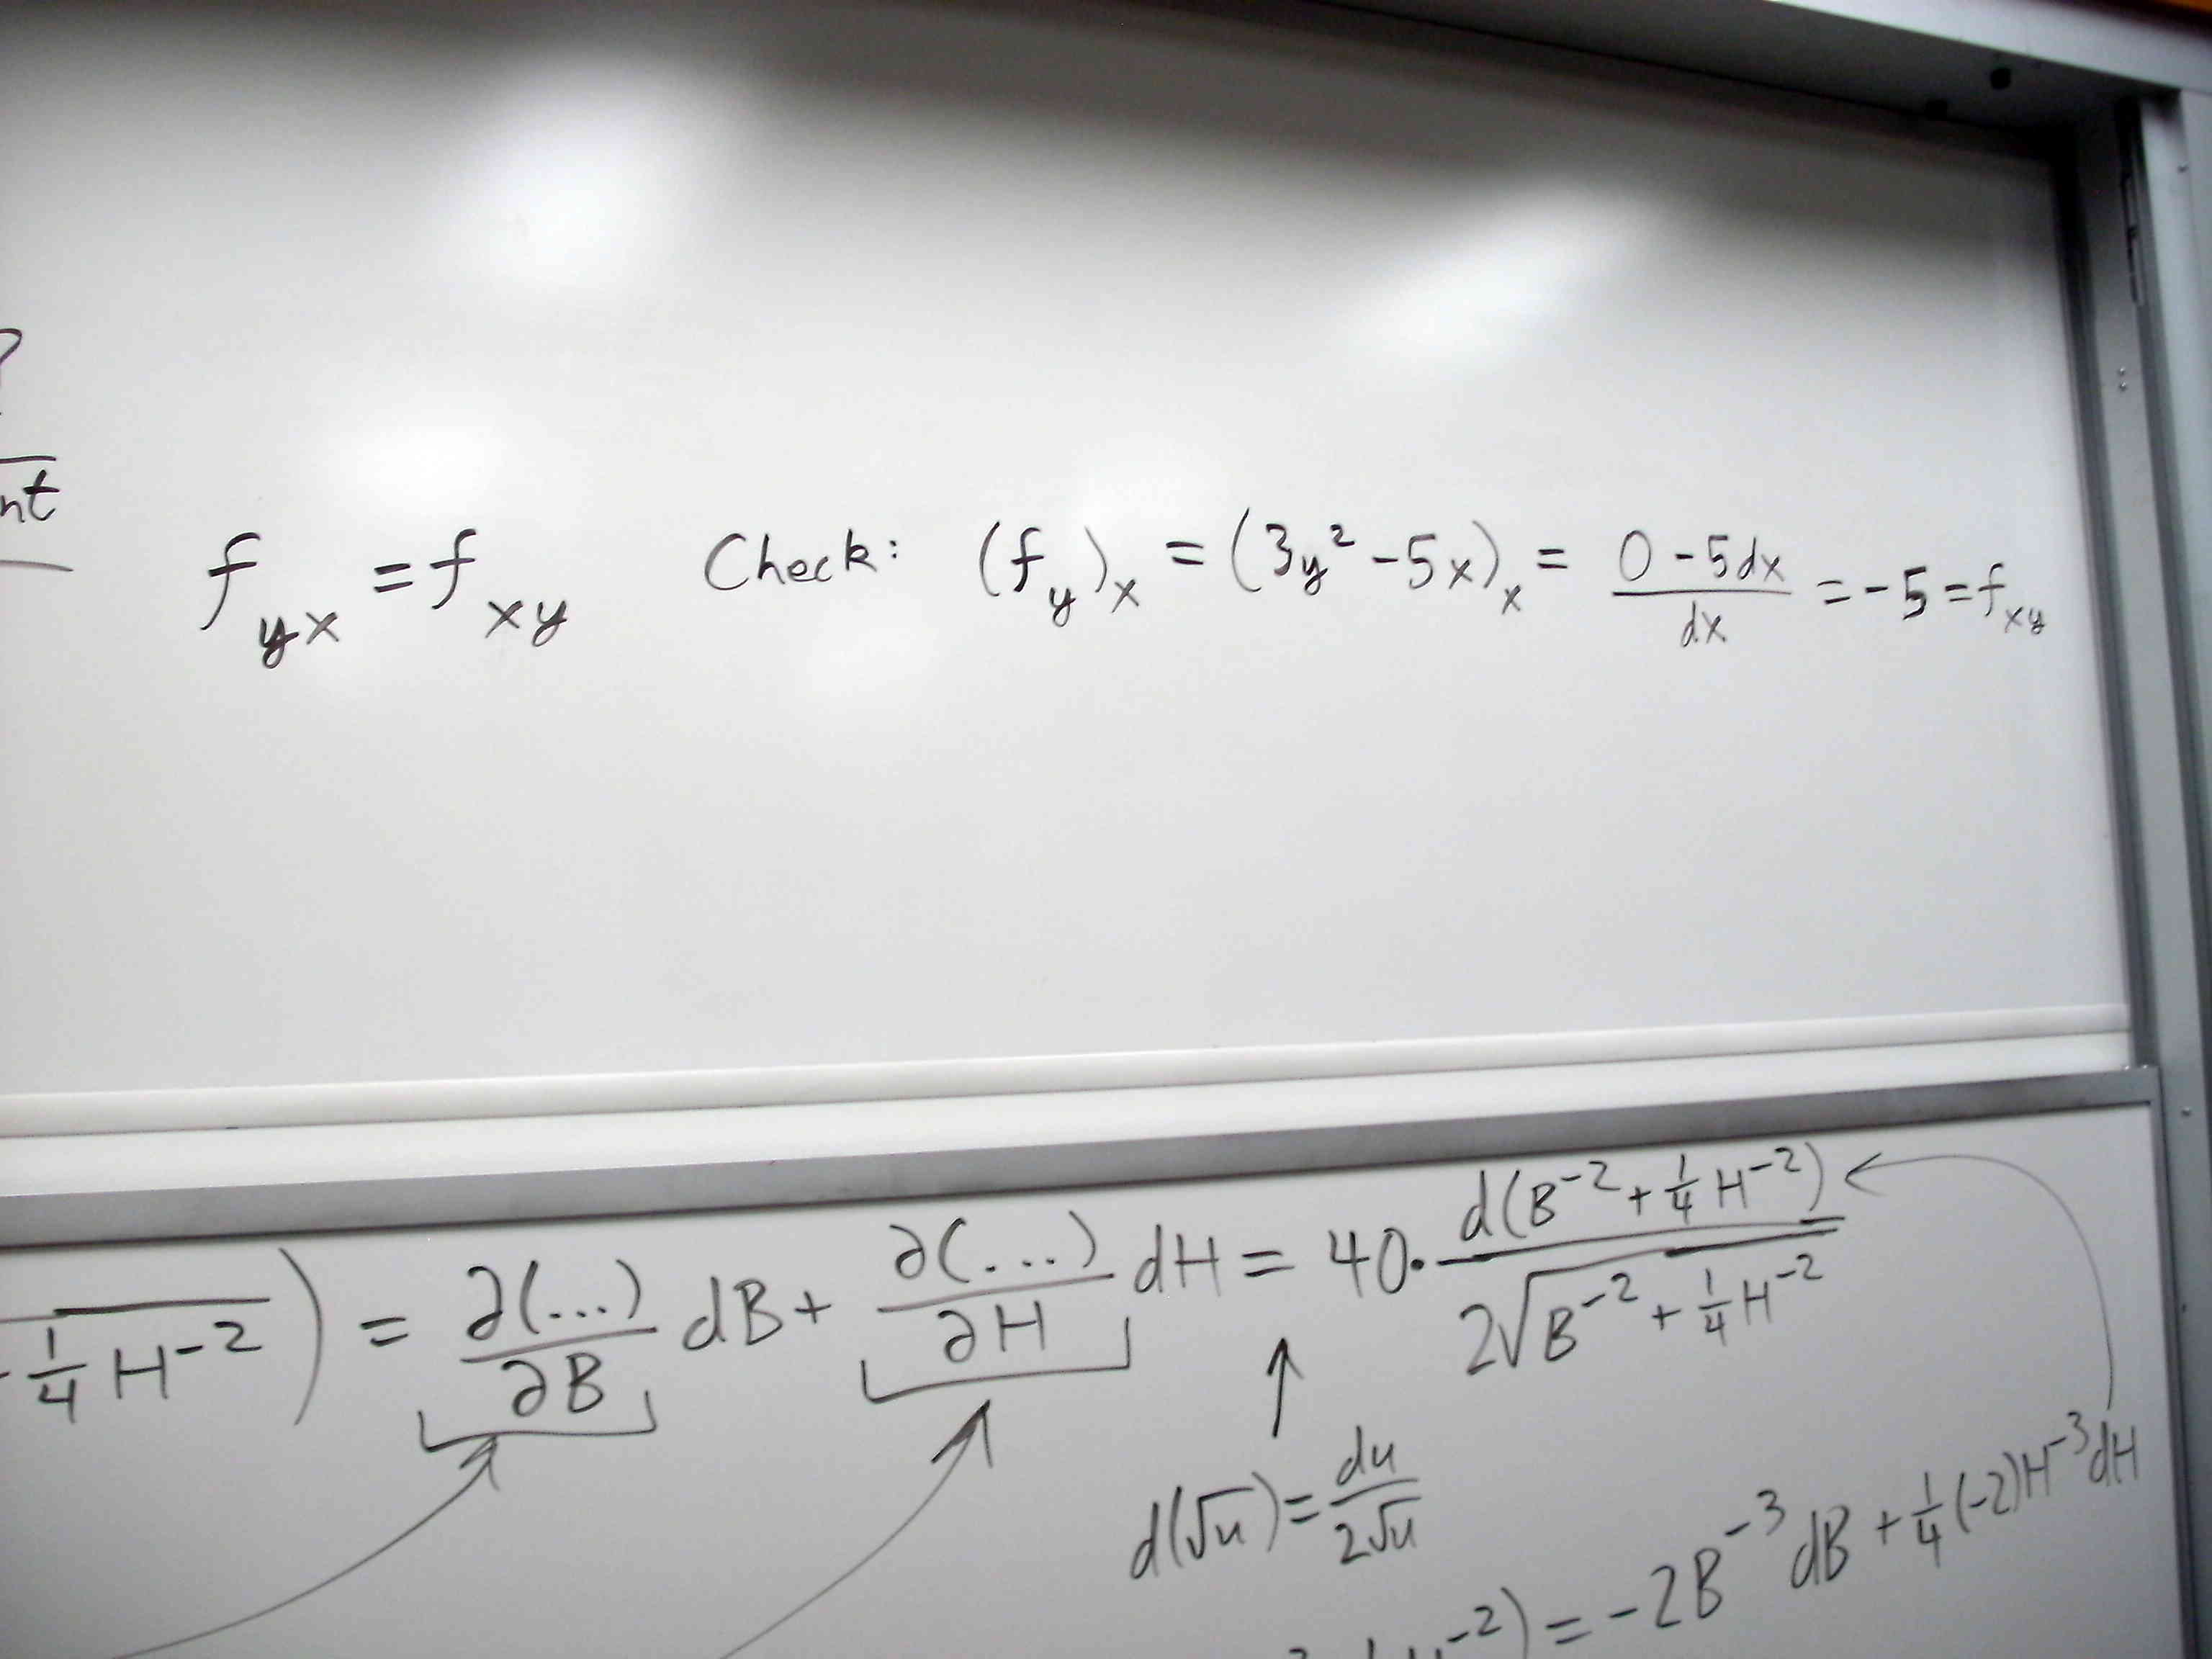 ?
nt
f_yx = f_xy Check: (f_y)_x = (3y² - 5x)_x = (0 - 5dx)/dx = -5 = f_xy
¼ H⁻²) = ∂(...)/∂B dB + ∂(...)/∂H dH = 40 · d(B⁻² + ¼ H⁻²)/(2√(B⁻² + ¼ H⁻²))
d(√u) = du/(2√u)
⁻²) = -2B⁻³dB + ¼(-2)H⁻³dH